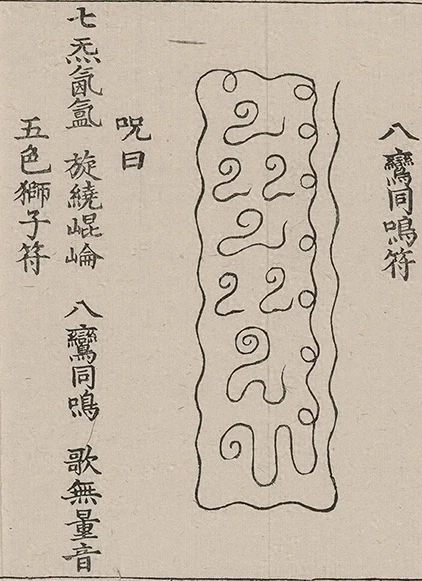 八鸞同鳴符
咒曰
七炁氤氳 旋繞崐崘 八鸞同鳴 歌無量音
五色獅子符